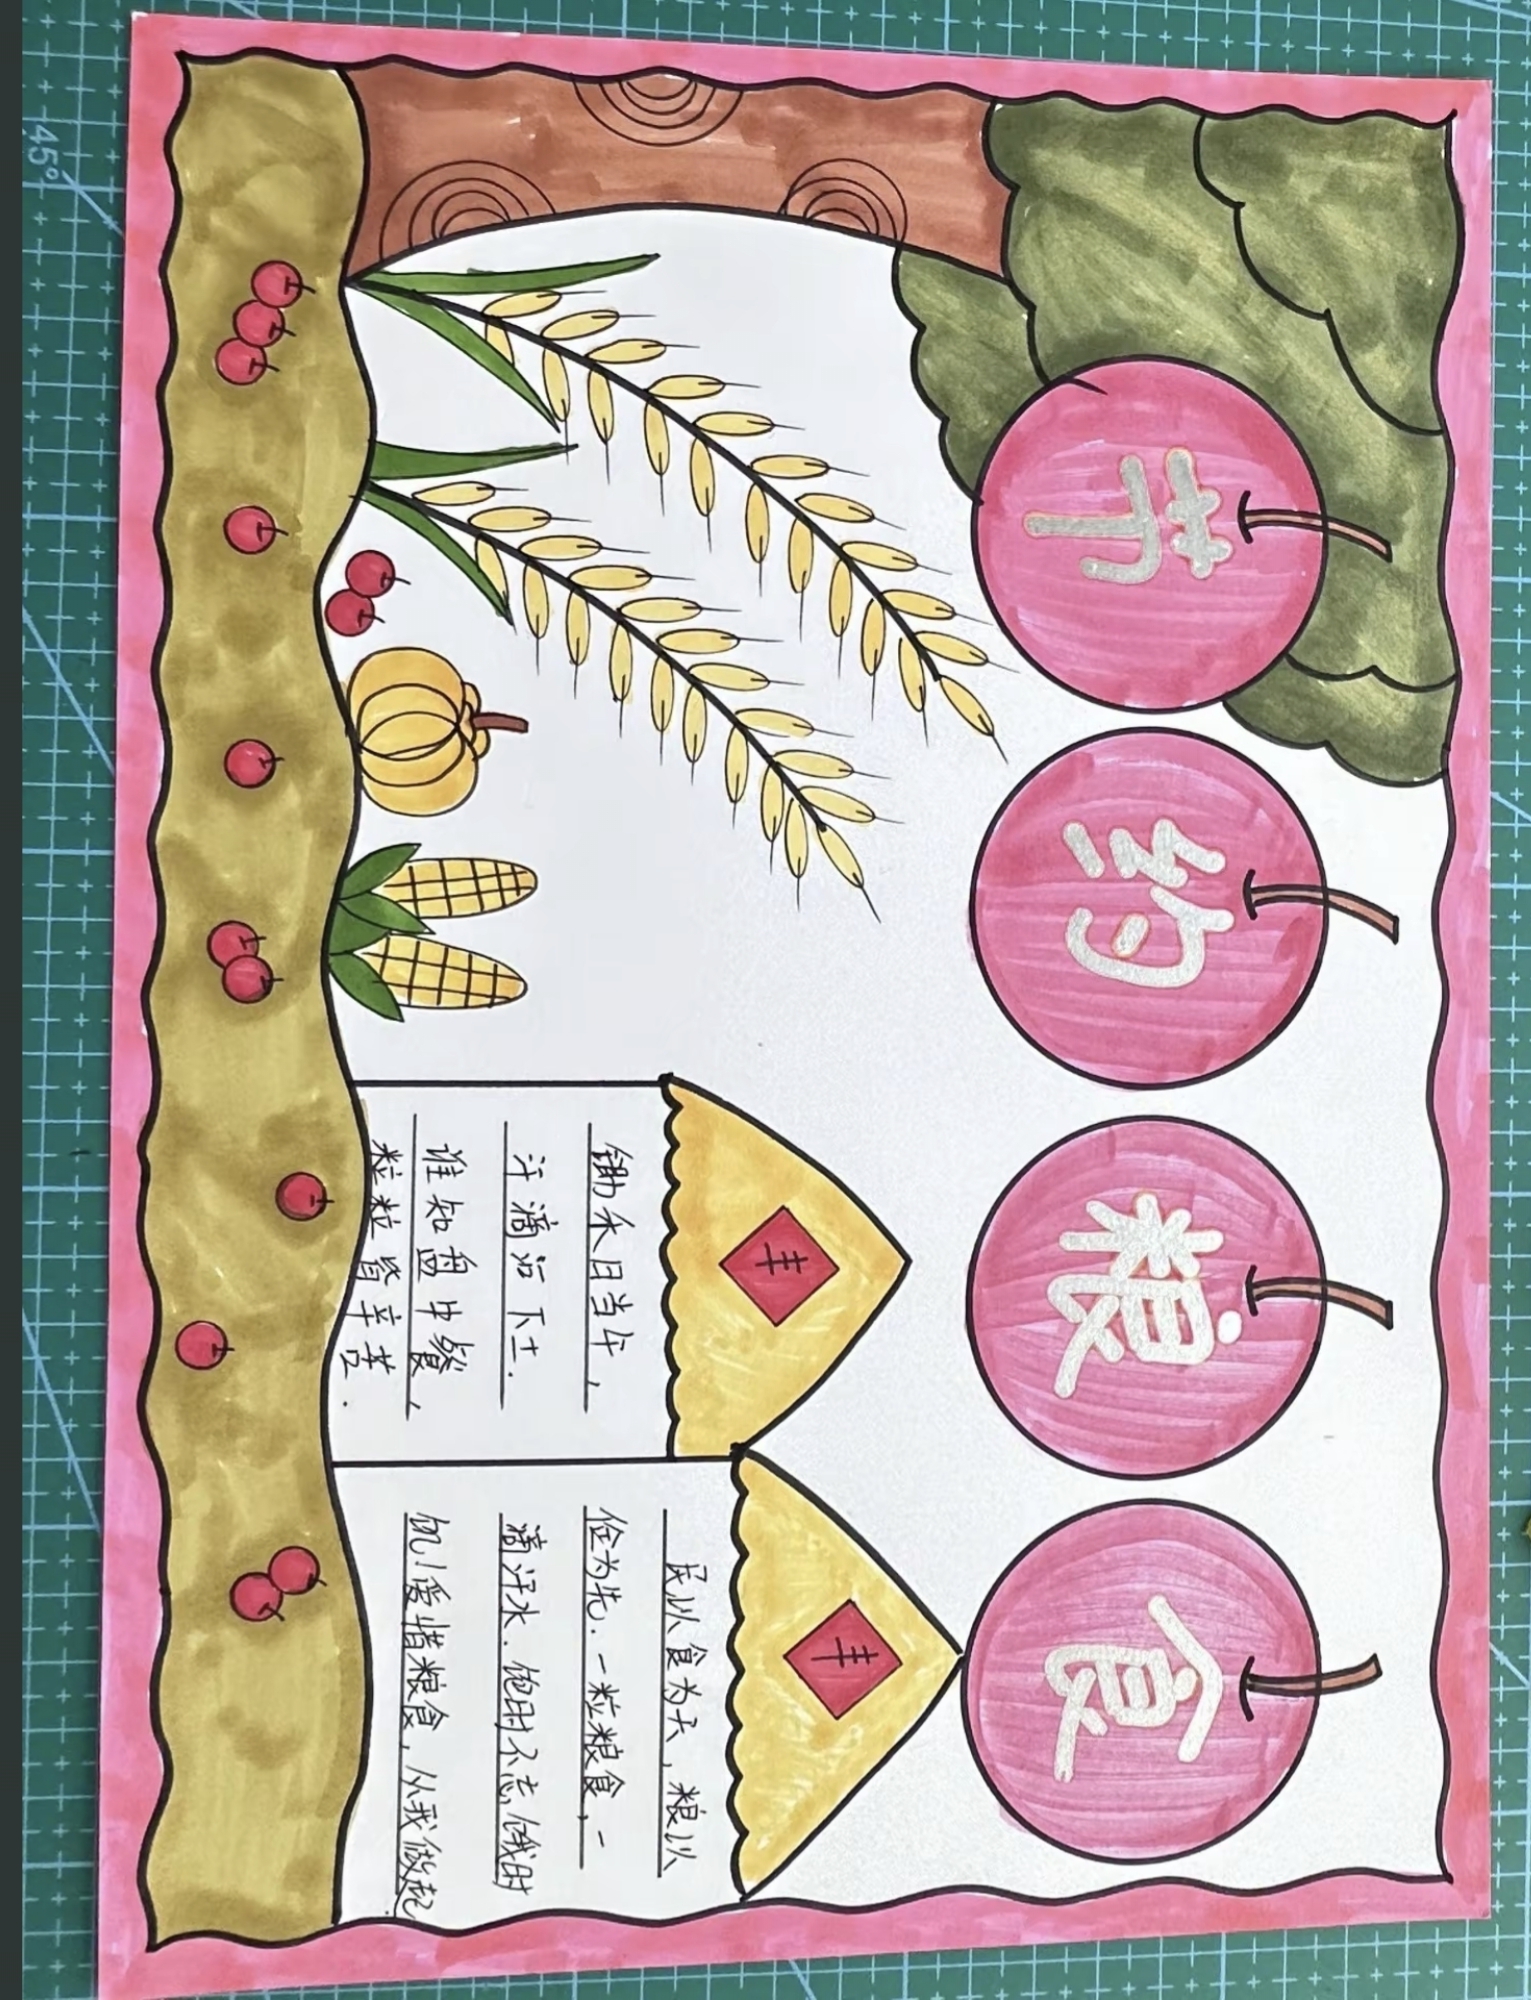 节约粮食
丰
锄禾日当午,
汗滴沿下土.
谁知盘中餐,
粒粒皆辛苦.
丰
民以食为天,粮以
俭为先.一粒粮食,一
滴汗水.饱时不忘饿时
饥!爱惜粮食,从我做起.
45°